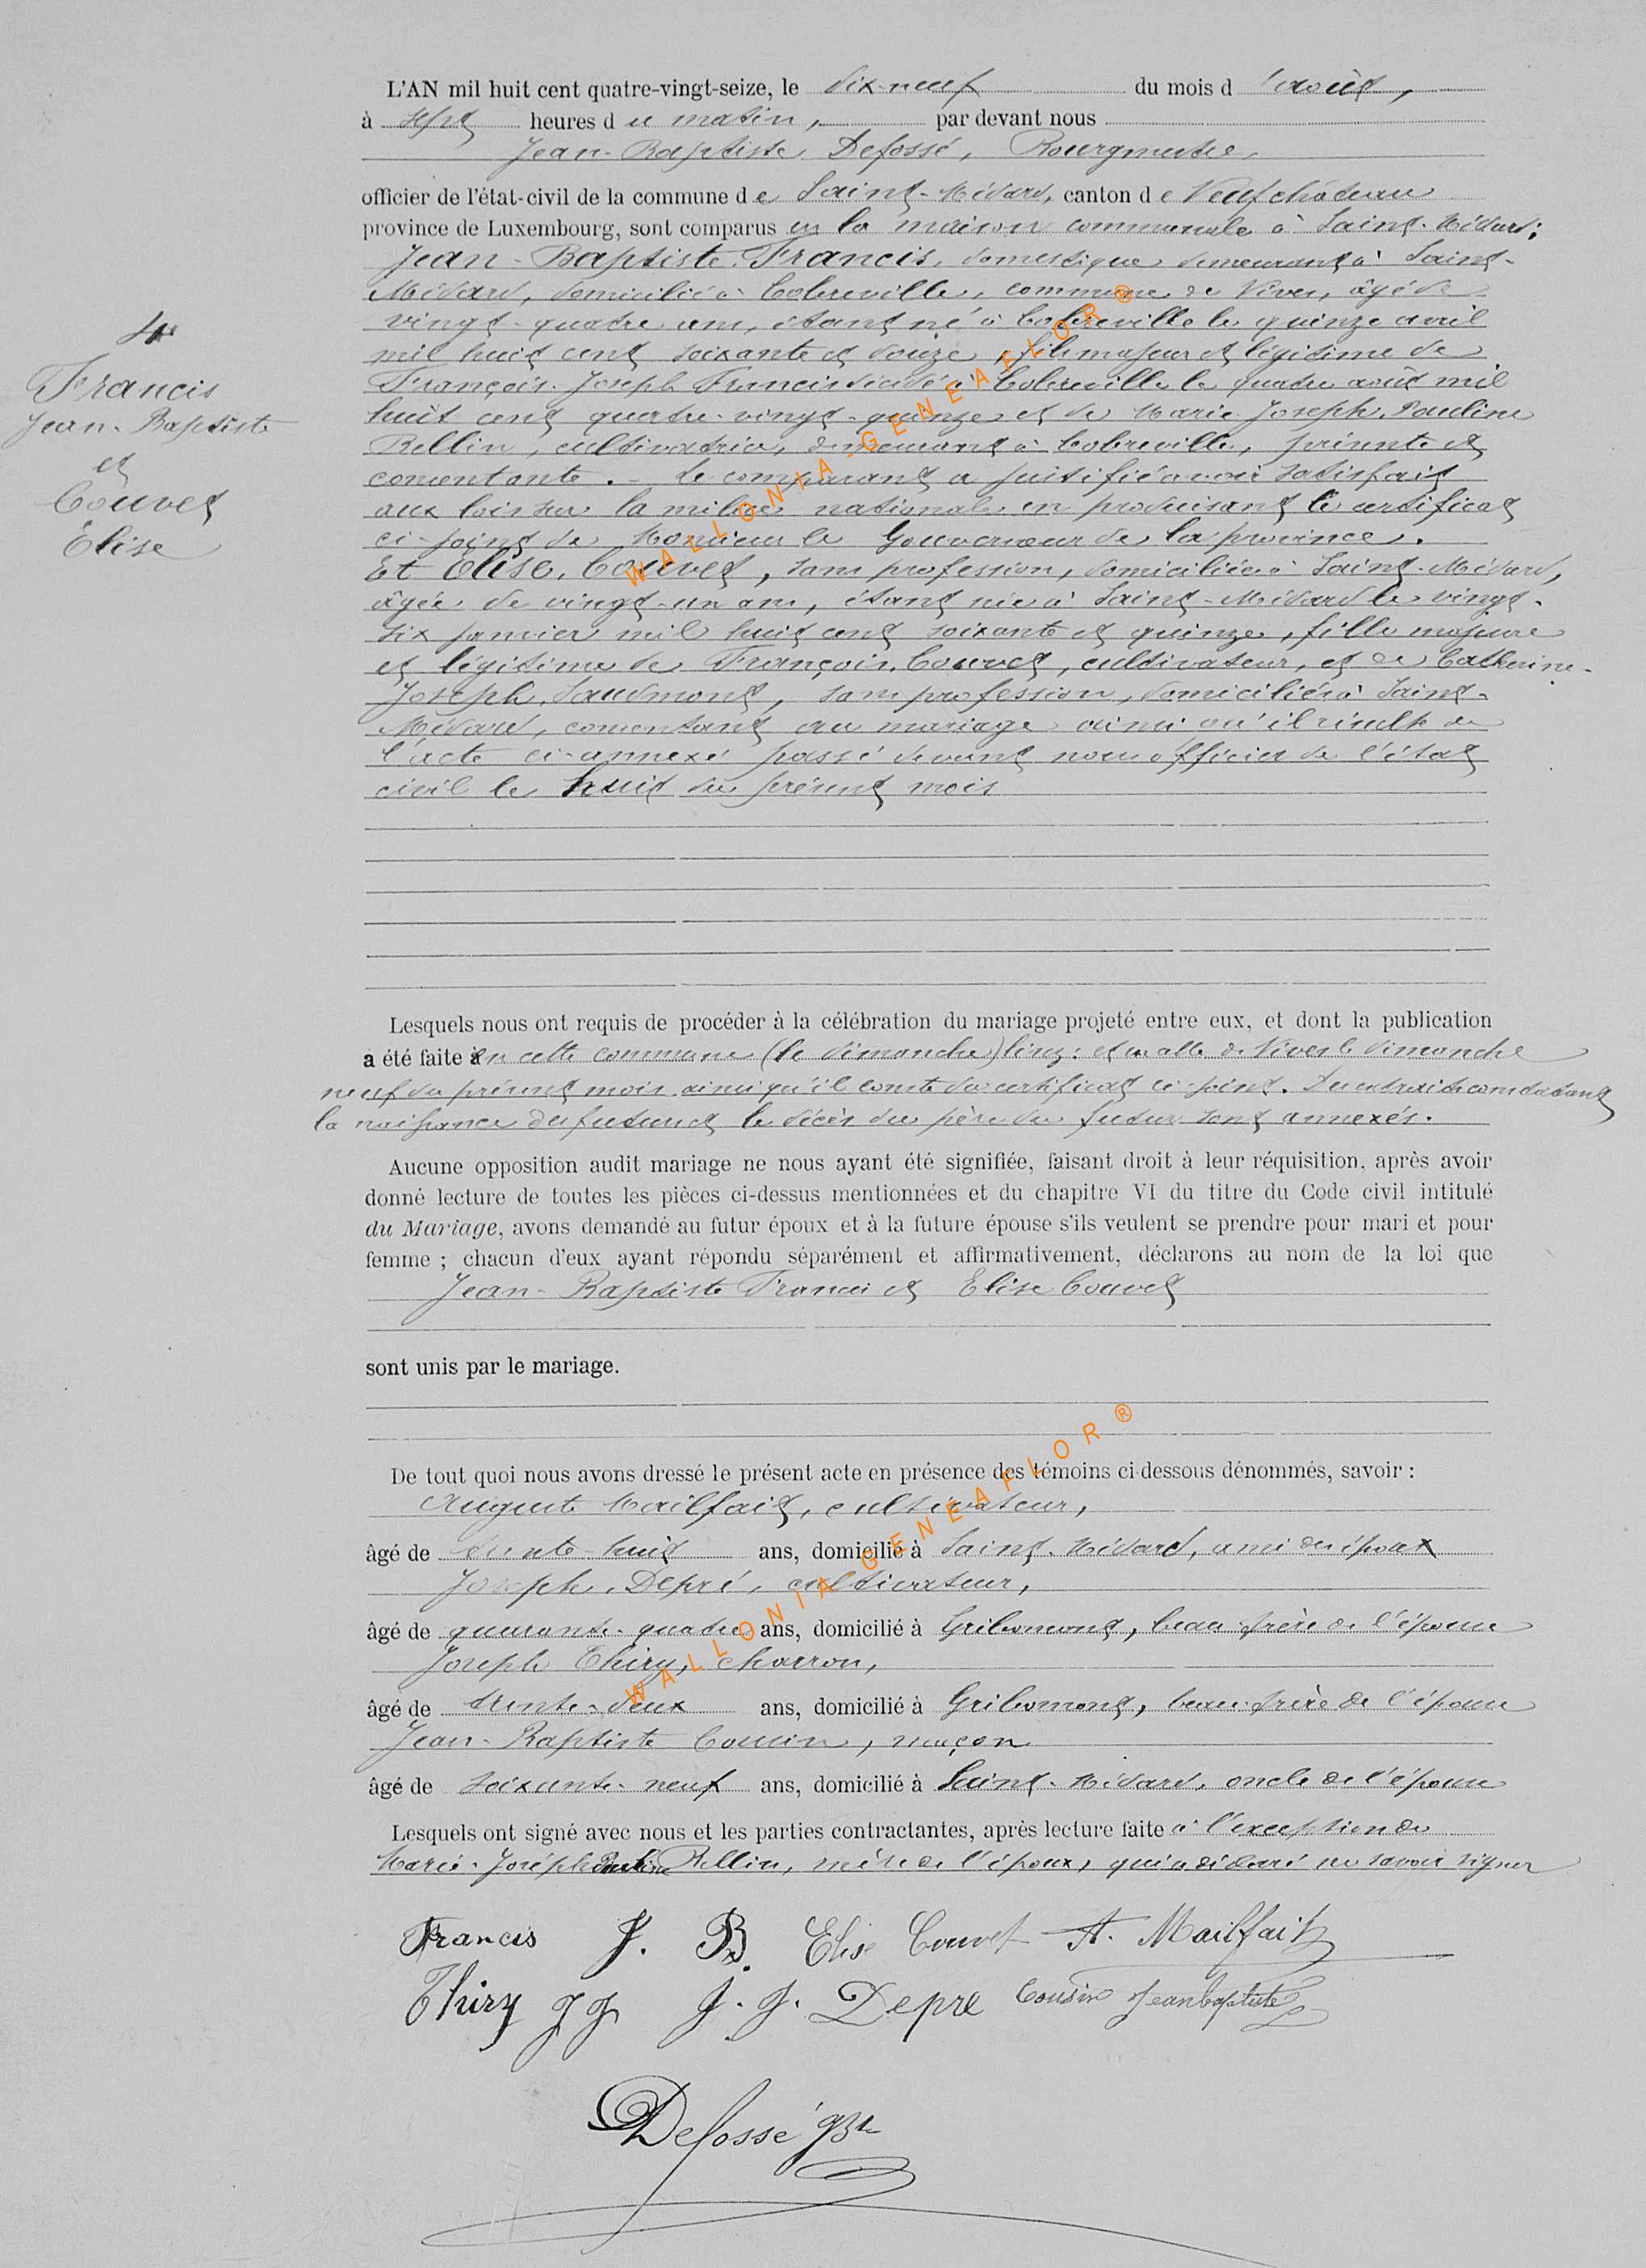 L'AN mil huit cent quatre-vingt-seize, le dix-neuf du mois d'août,
à sept heures du matin, par devant nous
Jean-Baptiste Defossé, Bourgmestre,
officier de l'état-civil de la commune de Saint-Médard, canton de Neufchâteau
province de Luxembourg, sont comparus en la maison communale à Saint-Médard:
Jean-Baptiste Francis, domestique demeurant à Saint-
Médard, domicilié à Cobreville, commune de Nives, âgé de
vingt-quatre ans, étant né à Cobreville le quinze avril
mil huit cent soixante et douze, fils majeur et légitime de
4
Francis
Jean-Baptiste
et
Couvet
Elise
François-Joseph Francis décédé à Cobreville le quatre août mil
huit cent quatre-vingt-quinze et de Marie-Joseph, Pauline
Bellin, cultivatrice, demeurant à Cobreville, présente et
consentante. - Le comparant a justifié avoir satisfait
aux lois sur la milice nationale en produisant le certificat
ci-joint de Monsieur le Gouverneur de la province.
Et Elise, Couvet, sans profession, domiciliée à Saint-Médard,
âgée de vingt-un ans, étant née à Saint-Médard le vingt-
six janvier mil huit cent soixante et quinze, fille majeure
et légitime de François, Couvet, cultivateur, et de Catherine-
Joseph, Laudmont, sans profession, domiciliés à Saint-
Médard, consentant au mariage ainsi qu'il résulte de
l'acte ci-annexé passé devant nous officier de l'état
civil le huit du présent mois
Lesquels nous ont requis de procéder à la célébration du mariage projeté entre eux, et dont la publication
a été faite en cette commune (le dimanche) et en celle de Nives le dimanche
neuf du présent mois ainsi qu'il conste du certificat ci-joint. Des extraits constatant
la naissance des futurs et le décès du père du futur sont annexés.
Aucune opposition audit mariage ne nous ayant été signifiée, faisant droit à leur réquisition, après avoir
donné lecture de toutes les pièces ci-dessus mentionnées et du chapitre VI du titre du Code civil intitulé
du Mariage, avons demandé au futur époux et à la future épouse s'ils veulent se prendre pour mari et pour
femme ; chacun d'eux ayant répondu séparément et affirmativement, déclarons au nom de la loi que
Jean-Baptiste Francis et Elise Couvet
sont unis par le mariage.
De tout quoi nous avons dressé le présent acte en présence des témoins ci-dessous dénommés, savoir :
Auguste Mailfait, cultivateur,
âgé de trente-huit ans, domicilié à Saint-Médard, ami des époux
Joseph, Depré, cultivateur,
âgé de quarante-quatre ans, domicilié à Gribomont, beau-frère de l'épouse
Joseph Thiry, charron,
âgé de trente-deux ans, domicilié à Gribomont, beau-frère de l'épouse
Jean-Baptiste Cousin, maçon
âgé de soixante-neuf ans, domicilié à Saint-Médard, oncle de l'épouse
Lesquels ont signé avec nous et les parties contractantes, après lecture faite à l'exception de
Marie-Joseph Pauline Bellin, mère de l'époux, qui a déclaré ne savoir signer
Francis J. B. Elise Couvet A. Mailfait
Thiry J J J. J. Depre Cousin Jean baptiste
Defossé JBte
WALLONIA-GENEAFLOR®
WALLONIA-GENEAFLOR®